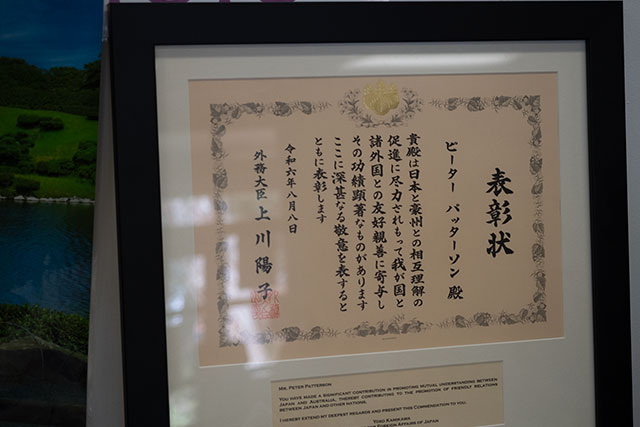 表彰状
ピーター パッターソン 殿
貴殿は日本と豪州との相互理解の
促進に尽力されもって我が国と
諸外国との友好親善に寄与し
その功績顕著なものがあります
ここに深甚なる敬意を表すると
ともに表彰します
令和六年八月八日
外務大臣 上川陽子
Mr. Peter Petterson
You have made a significant contribution in promoting mutual understanding between
Japan and Australia, thereby contributing to the promotion of friendly relations
between Japan and other nations.
I hereby extend my deepest regards and present this commendation to you.
Yoko Kamikawa
Foreign Affairs of Japan